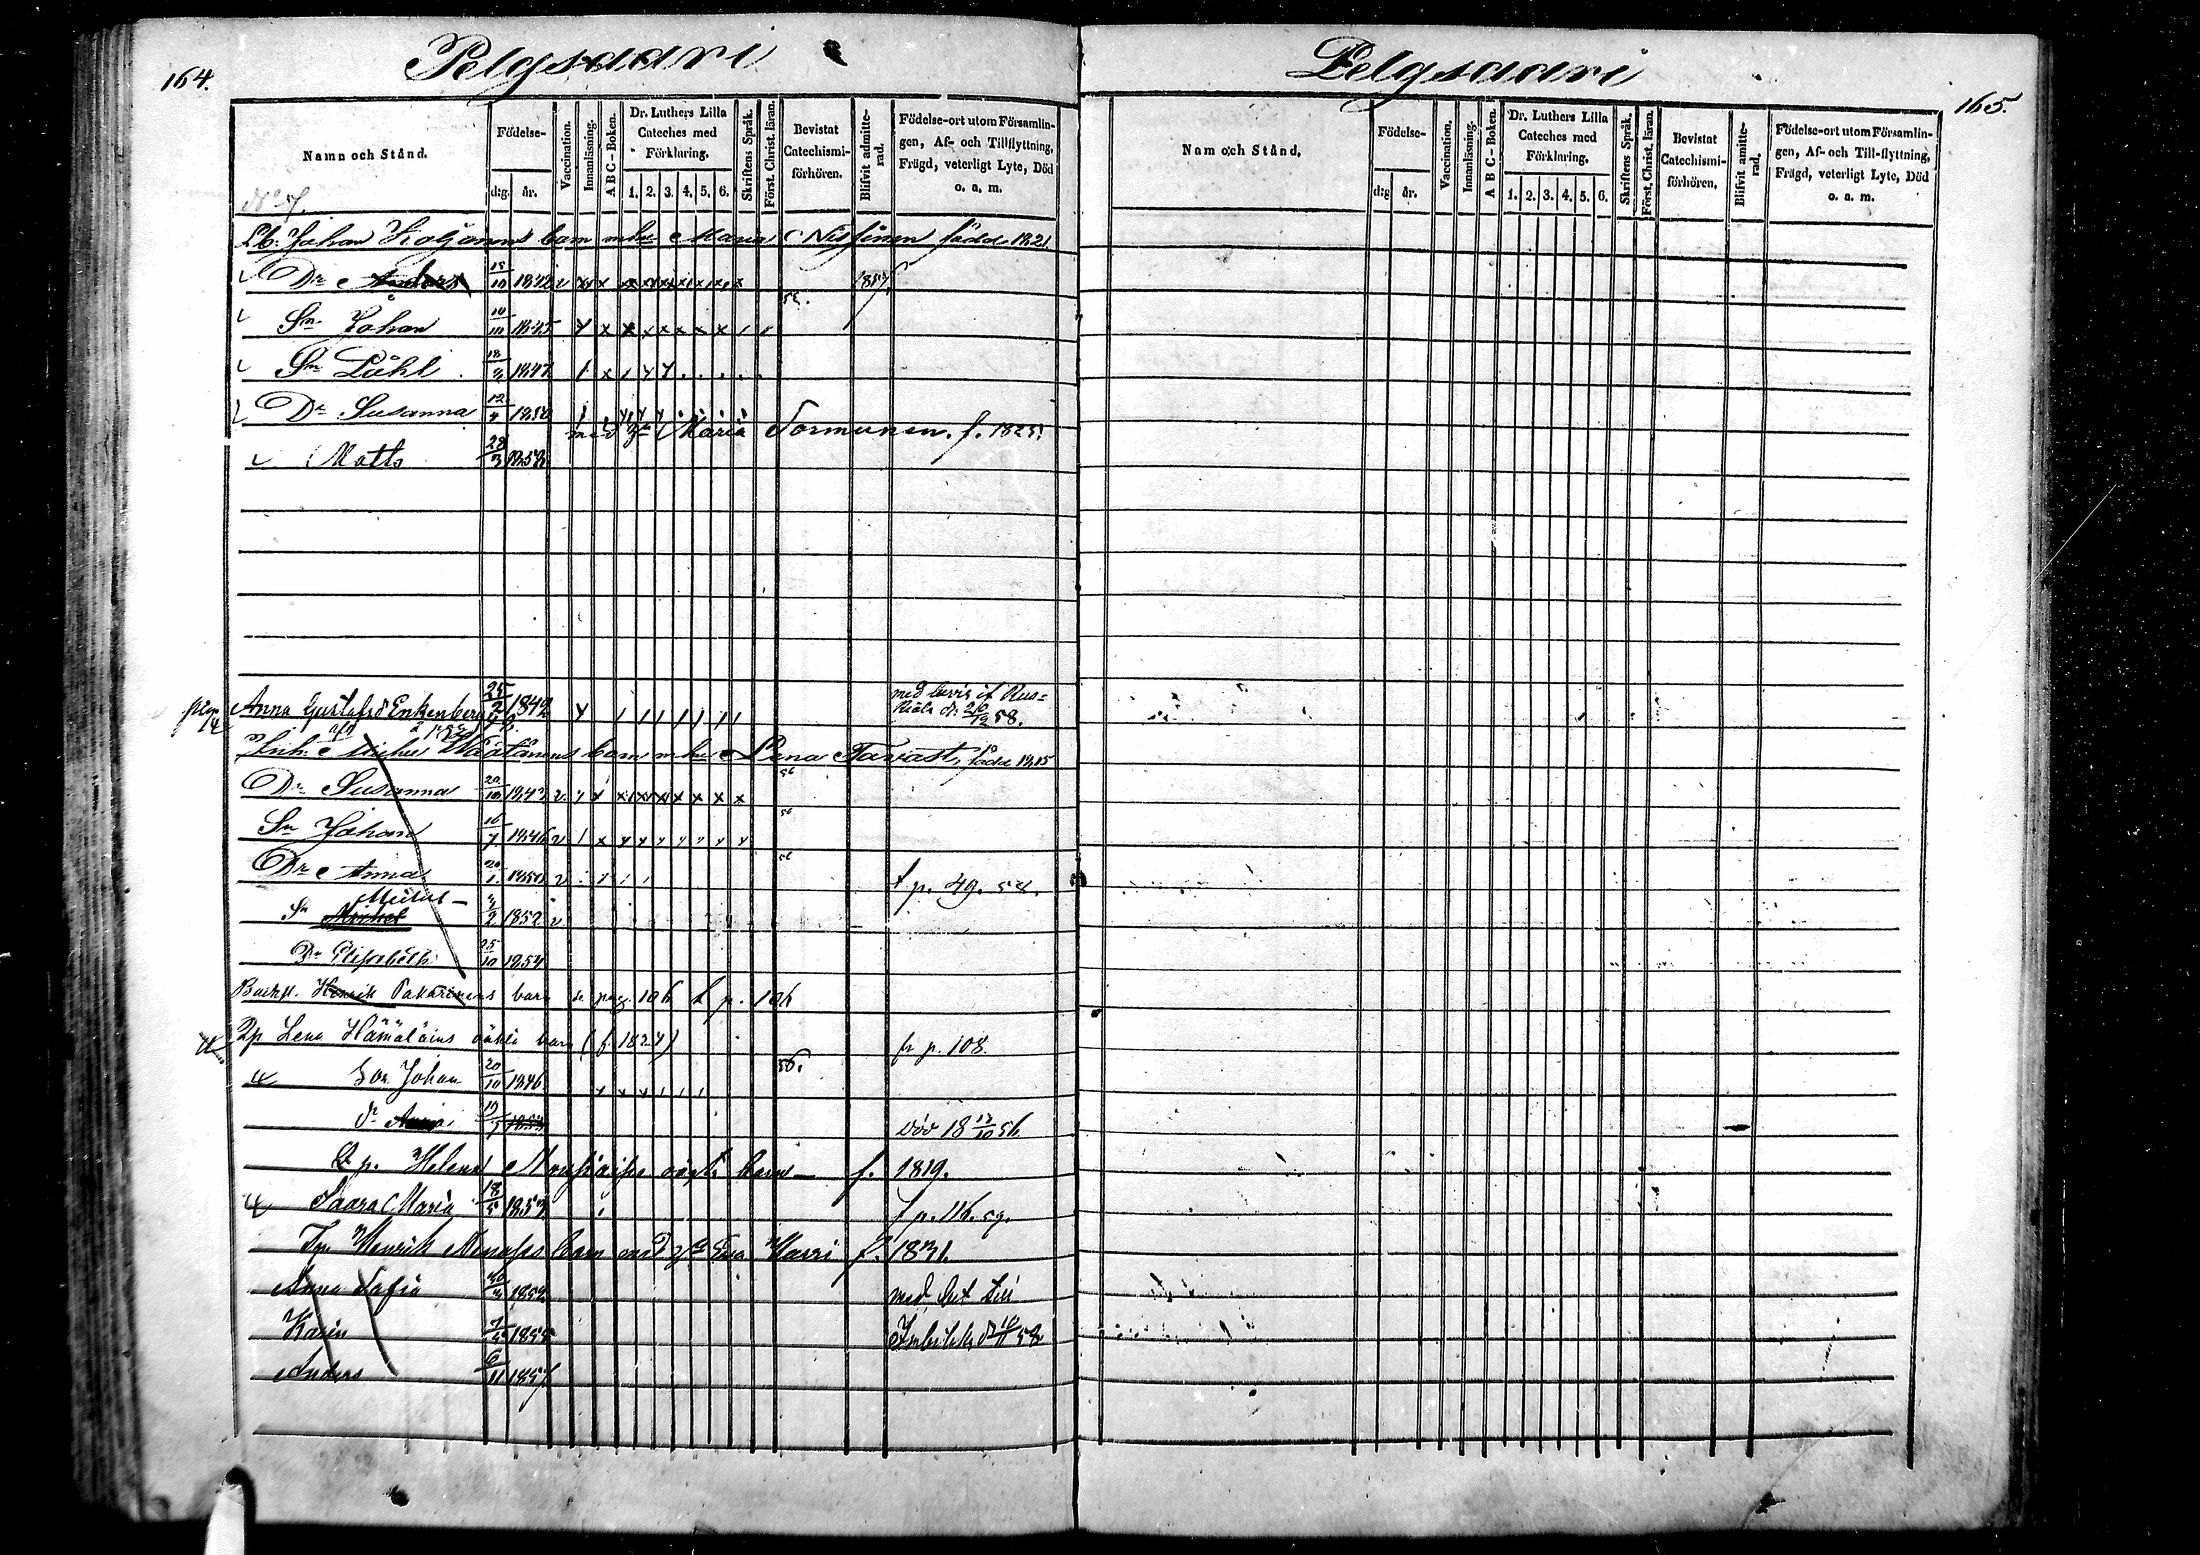 164.
Pelgsaari
Namn och Stånd.
Födelse-
d:g. år.
Vaccination.
Innanläsning.
A B C - Boken.
Dr. Luthers Lilla
Cateches med
Förklaring.
1. 2. 3. 4. 5. 6.
Skriftens Språk.
Först. Christ. läran.
Bevistat
Catechismi-
förhören.
Blifvit admitte-
rad.
Födelse-ort utom Församlin-
gen, Af- och Tillflyttning,
Frägd, veterligt Lyte, Död
o. a. m.
No 7.
Lb. Johan barn m hu Maria Nissinen född 1821
Dr Anders 15/10 1842 v 1857
Sn Johan 10/10 1845 52.
Sn Påhl 18/2 1847
Dr Susanna 12 1850
med Maria Tormunen. f. 1825.
Matts 28/3 1858
Anna Gustafsd Enkenberg 25/2 1842 med bevis
d. 20/12 58.
Inh. Michel barn m hu Lena Tavast, född 1815
Dr Susanna 20/10 1843 v. 56
Sn Johan 16/7 1846 v 56
Dr Anna 20/1 1850 v 56 f p. 49. 58.
Michel
Sn Michel 2 1852 v
Dr Elisabeth 25/10 1854
Henrik Pakarinens barn pag. 106 p. 106
Qp Lena Hämäläins oäkta barn (f. 1827) fr p. 108.
Son Johan 20/10 1846 56.
dr Anna 19/7 1853 död 18 13/10 56
Qp. Helena oägt. barn f. 1819.
Saara Maria 18/5 1853 f p. 116. 59.
Henrik barn med Eva Harri f. 1831.
Anna Sofia 30/3 1852 med bet till
Karin 7/5 1855 58
Anders 6/11 1857
Pelgsaari
165.
Namn och Stånd.
Födelse-
d:g år.
Vaccination.
Innanläsning.
A B C - Boken.
Dr. Luthers Lilla
Cateches med
Förklaring.
1. 2. 3. 4. 5. 6.
Skriftens Språk.
Först. Christ. läran.
Bevistat
Catechismi-
förhören.
Blifvit amitte-
rad.
Födelse-ort utom Församlin-
gen, Af- och Till-flyttning,
Frägd, veterligt Lyte, Död
o. a. m.